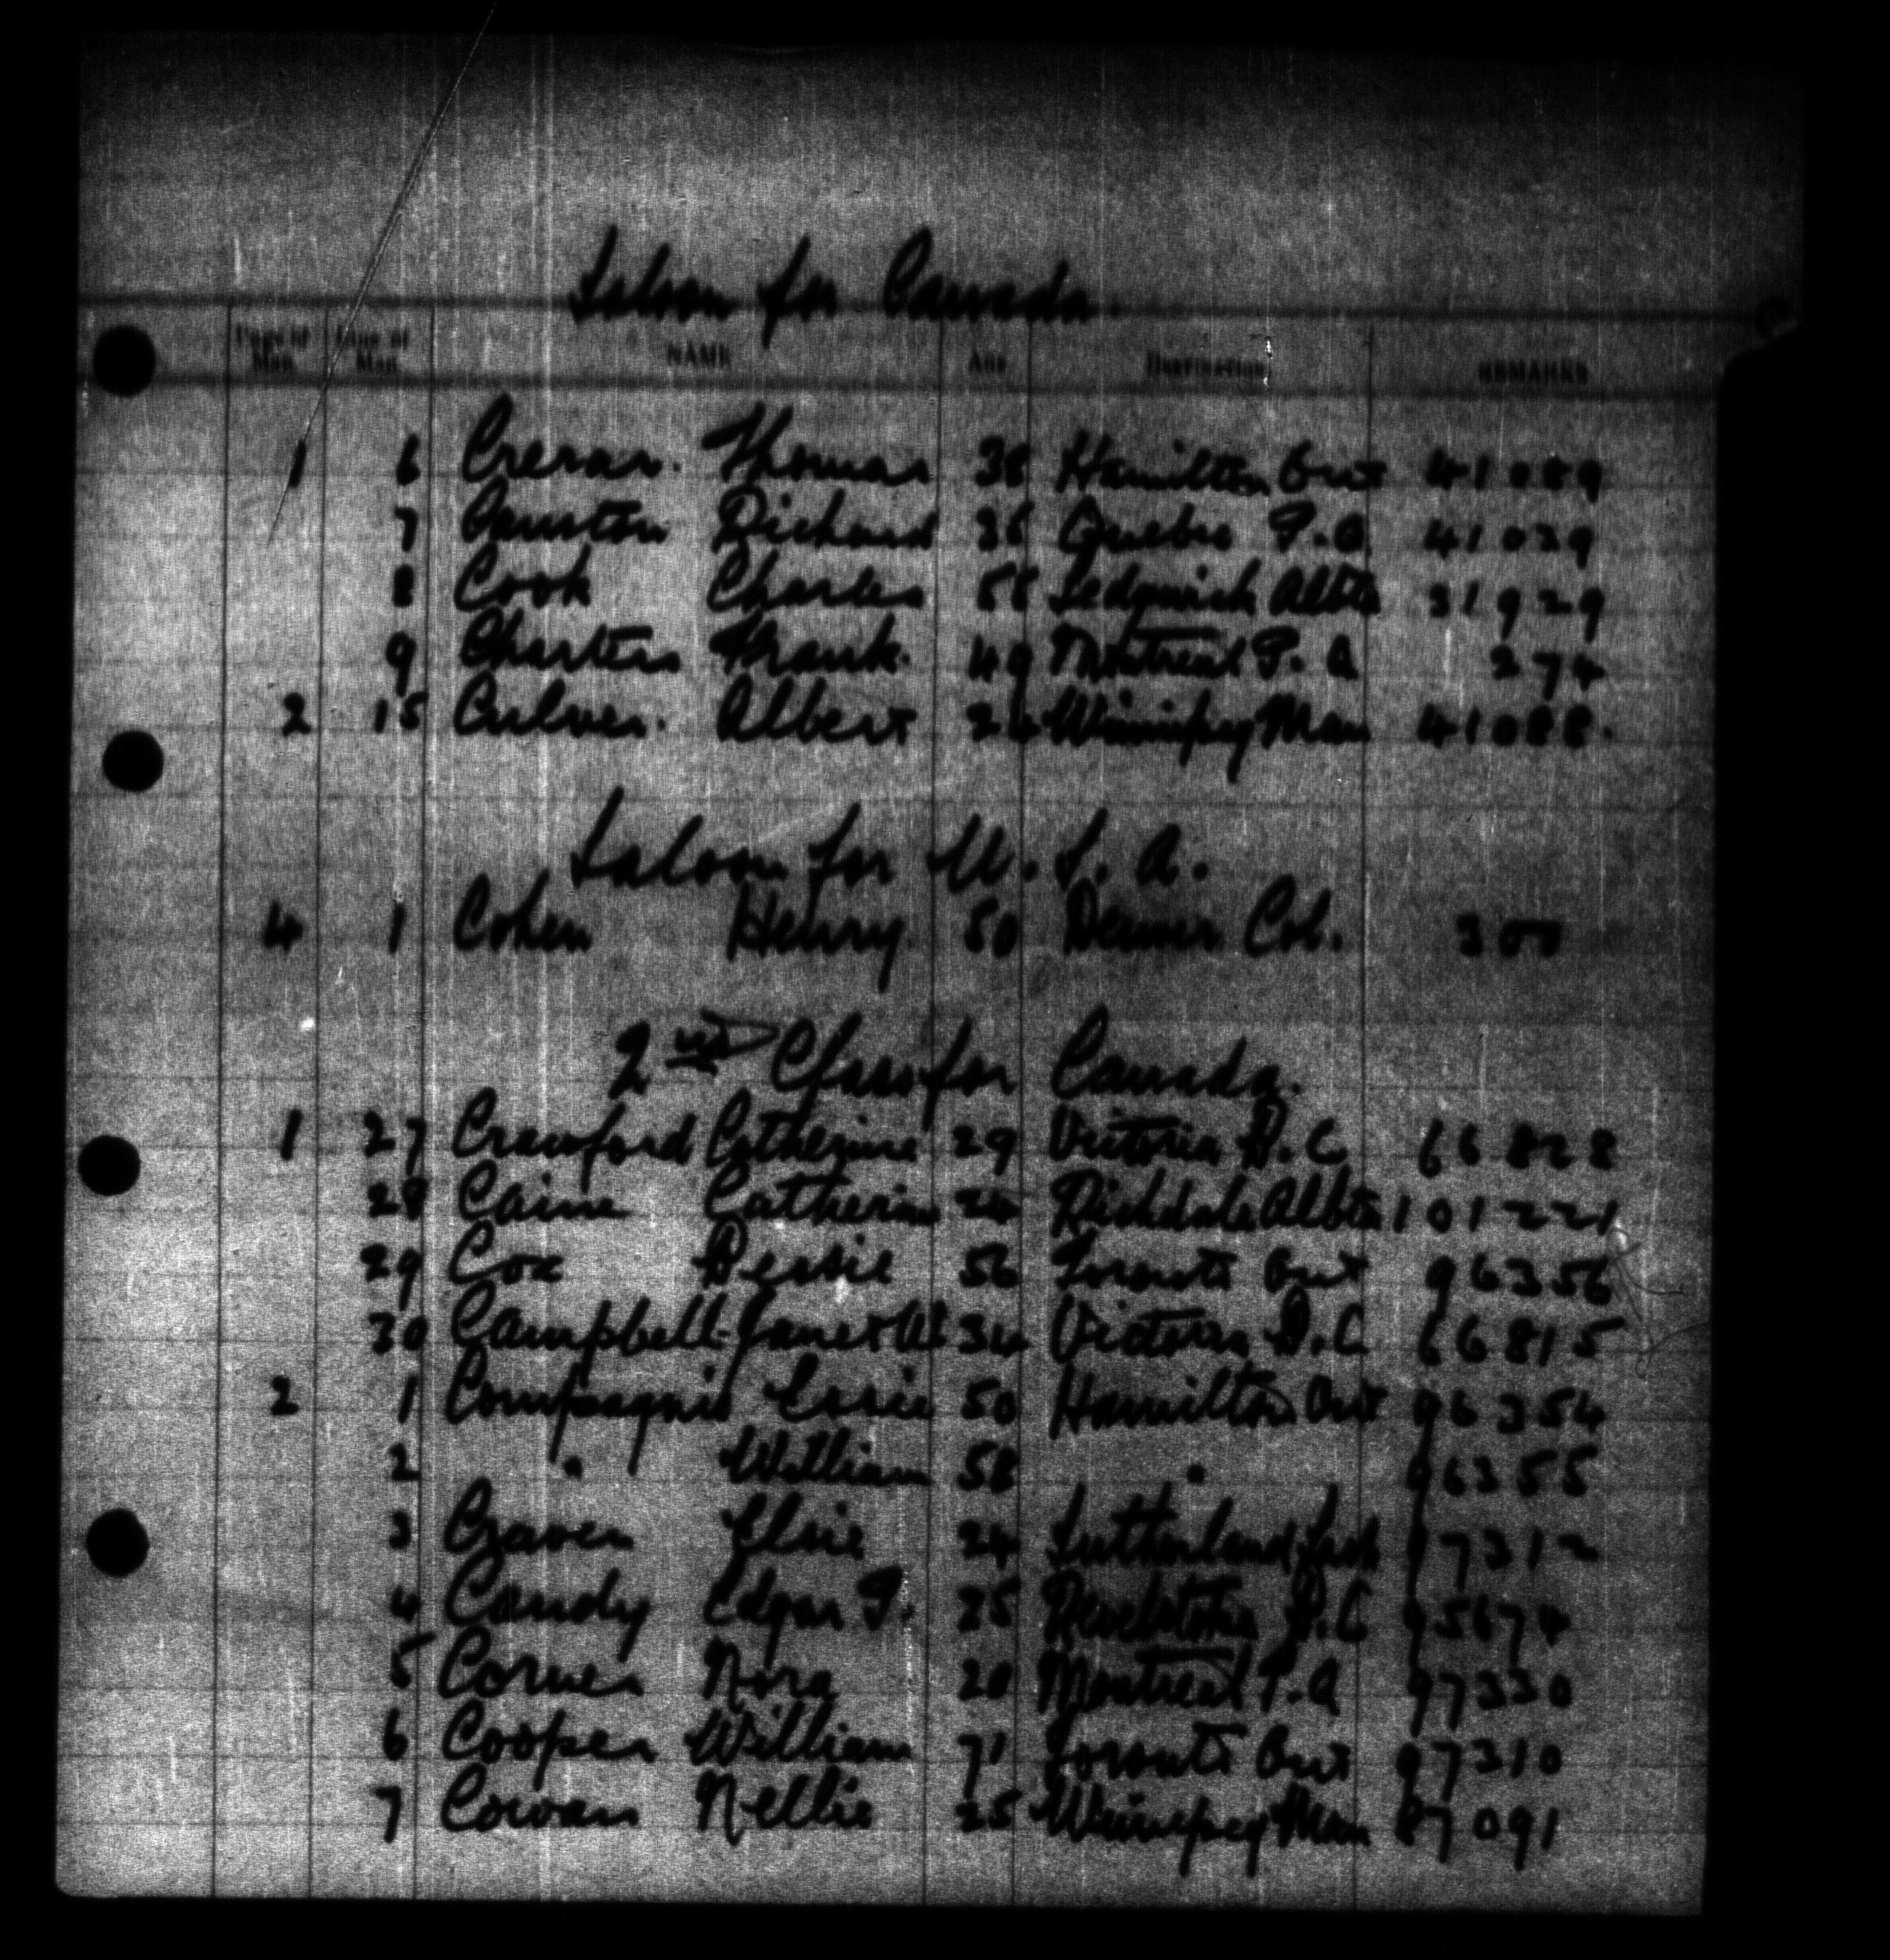 Saloon for Canada.
Page of Man. Line of Man. NAME Age Destination REMARKS
1 6 Crerar. Thomas 38 Hamilton Ont 41089
7 Richard 36 Quebec P.Q. 41039
8 Cook Charles 55 Sedgwick Alta 31929
9 Charters Frank. 49 Montreal P.Q 274
2 15 Culver. Albert 24 Winnipeg Man 41088.
Saloon for U.S.A.
4 1 Cohen Henry 50 Denver Col. 300
2nd Class for Canada.
1 27 Crawford Catherine 29 Victoria B.C. 66828
28 Caine Catherine 24 Richdale Albta 101221
29 Cox Bessie 56 Toronto Ont 96356
30 Campbell Janet 34 Victoria B.C 66815
2 1 Compagnie 50 Hamilton Ont 96354
2 " William 58 " 96355
3 Craven Elsie 24 Sutherland Sask 97312
4 Candy Edgar P. 25 Revelstoke B.C 95674
5 Corner Nora 20 Montreal P.Q 97330
6 Cooper William 71 Toronto Ont 97310
7 Cowan Nellie 25 Winnipeg Man 87091